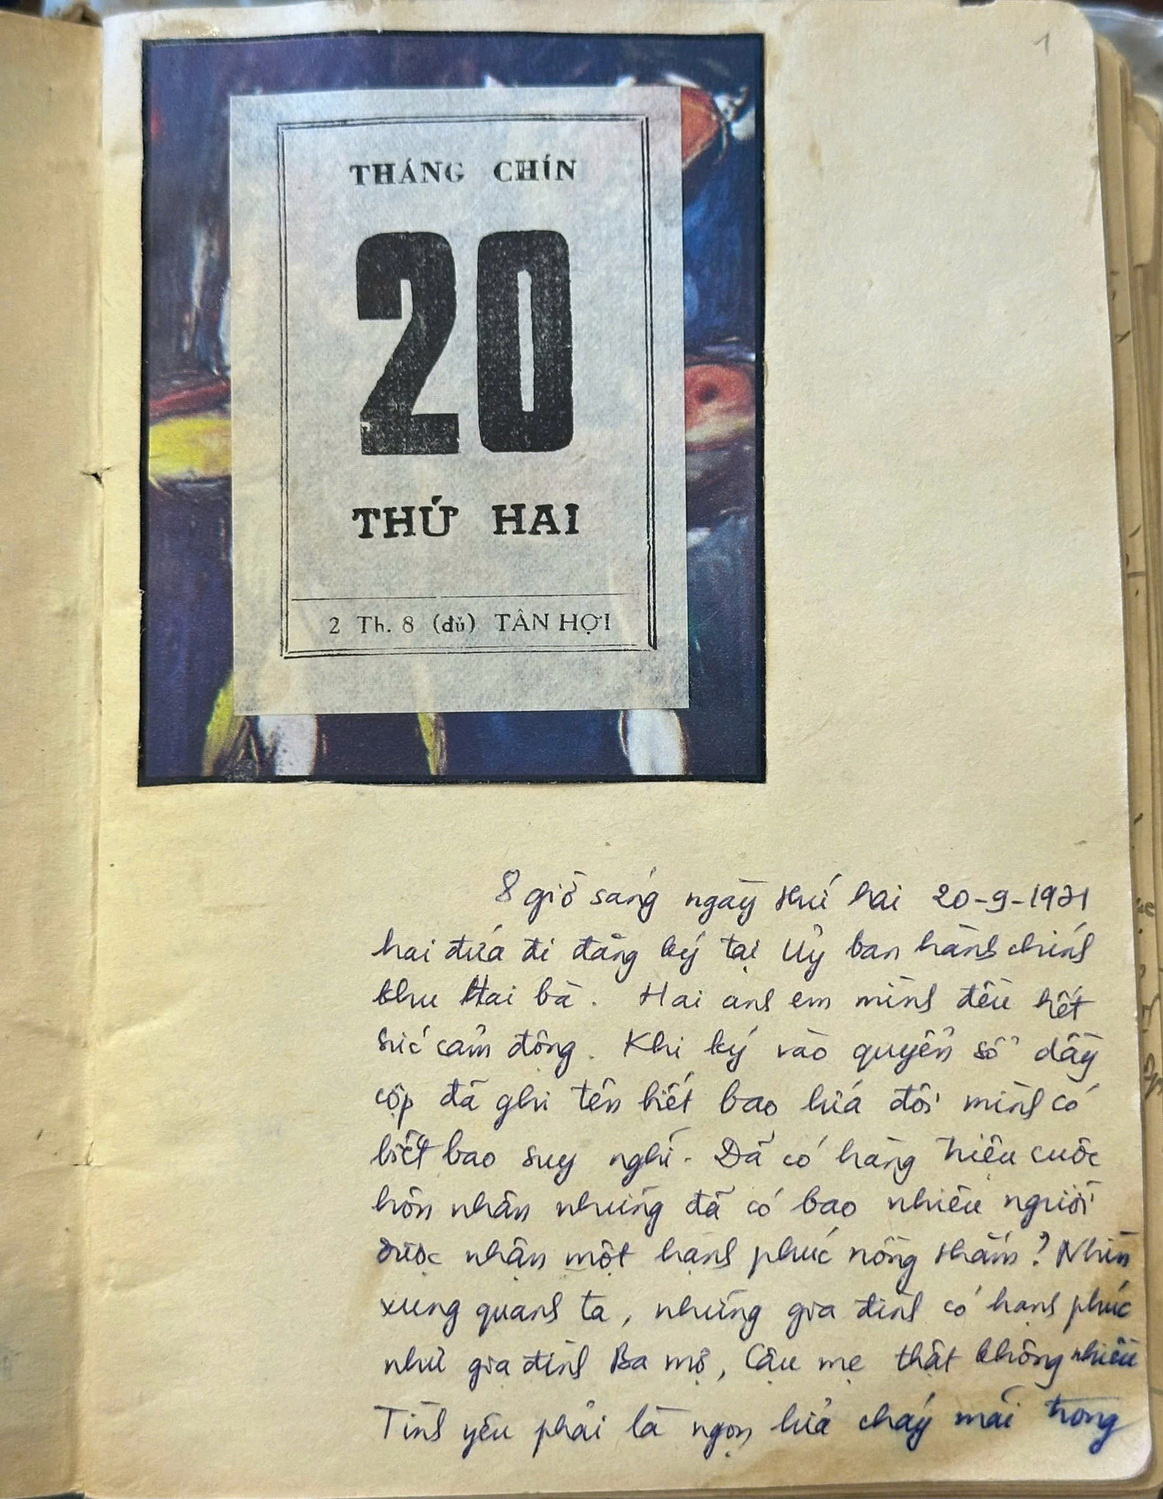 1
THÁNG CHÍN
20
THỨ HAI
2 Th. 8 (đủ) TÂN HỢI
8 giờ sáng ngày thứ hai 20-9-1971
hai đứa đi đăng ký tại Uỷ ban hành chính
khu Hai bà. Hai anh em mình đều hết
sức cảm động. Khi ký vào quyển sổ dầy
cộp đã ghi tên biết bao lứa đôi mình có
biết bao suy nghĩ. Đã có hàng triệu cuộc
hôn nhân nhưng đã có bao nhiêu người
được nhận một hạnh phúc nồng thắm? Nhìn
xung quanh ta, những gia đình có hạnh phúc
như gia đình Ba mợ, Cậu mẹ thật không nhiều
Tình yêu phải là ngọn lửa cháy mãi trong